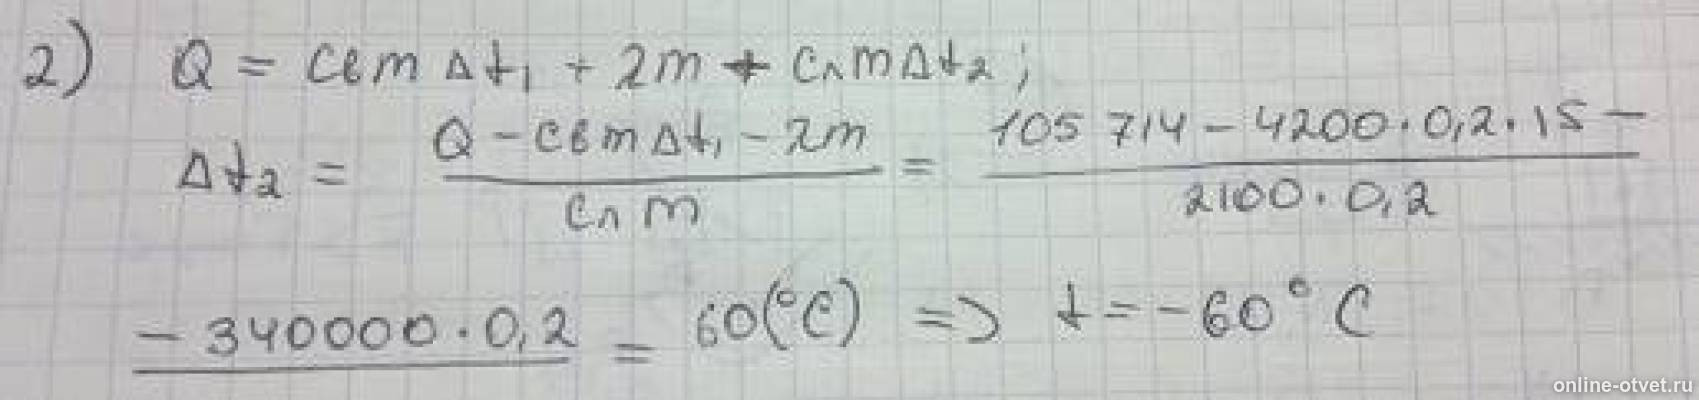 2) Q = cвm Δt₁ + λm + cлmΔt₂;
Δt₂ = (Q - cвmΔt₁ - λm) / (cлm) = (105 714 - 4200·0,2·15 -) / (2100·0,2)
- 340000·0,2 = 60(°C) => t = -60°C
online-otvet.ru